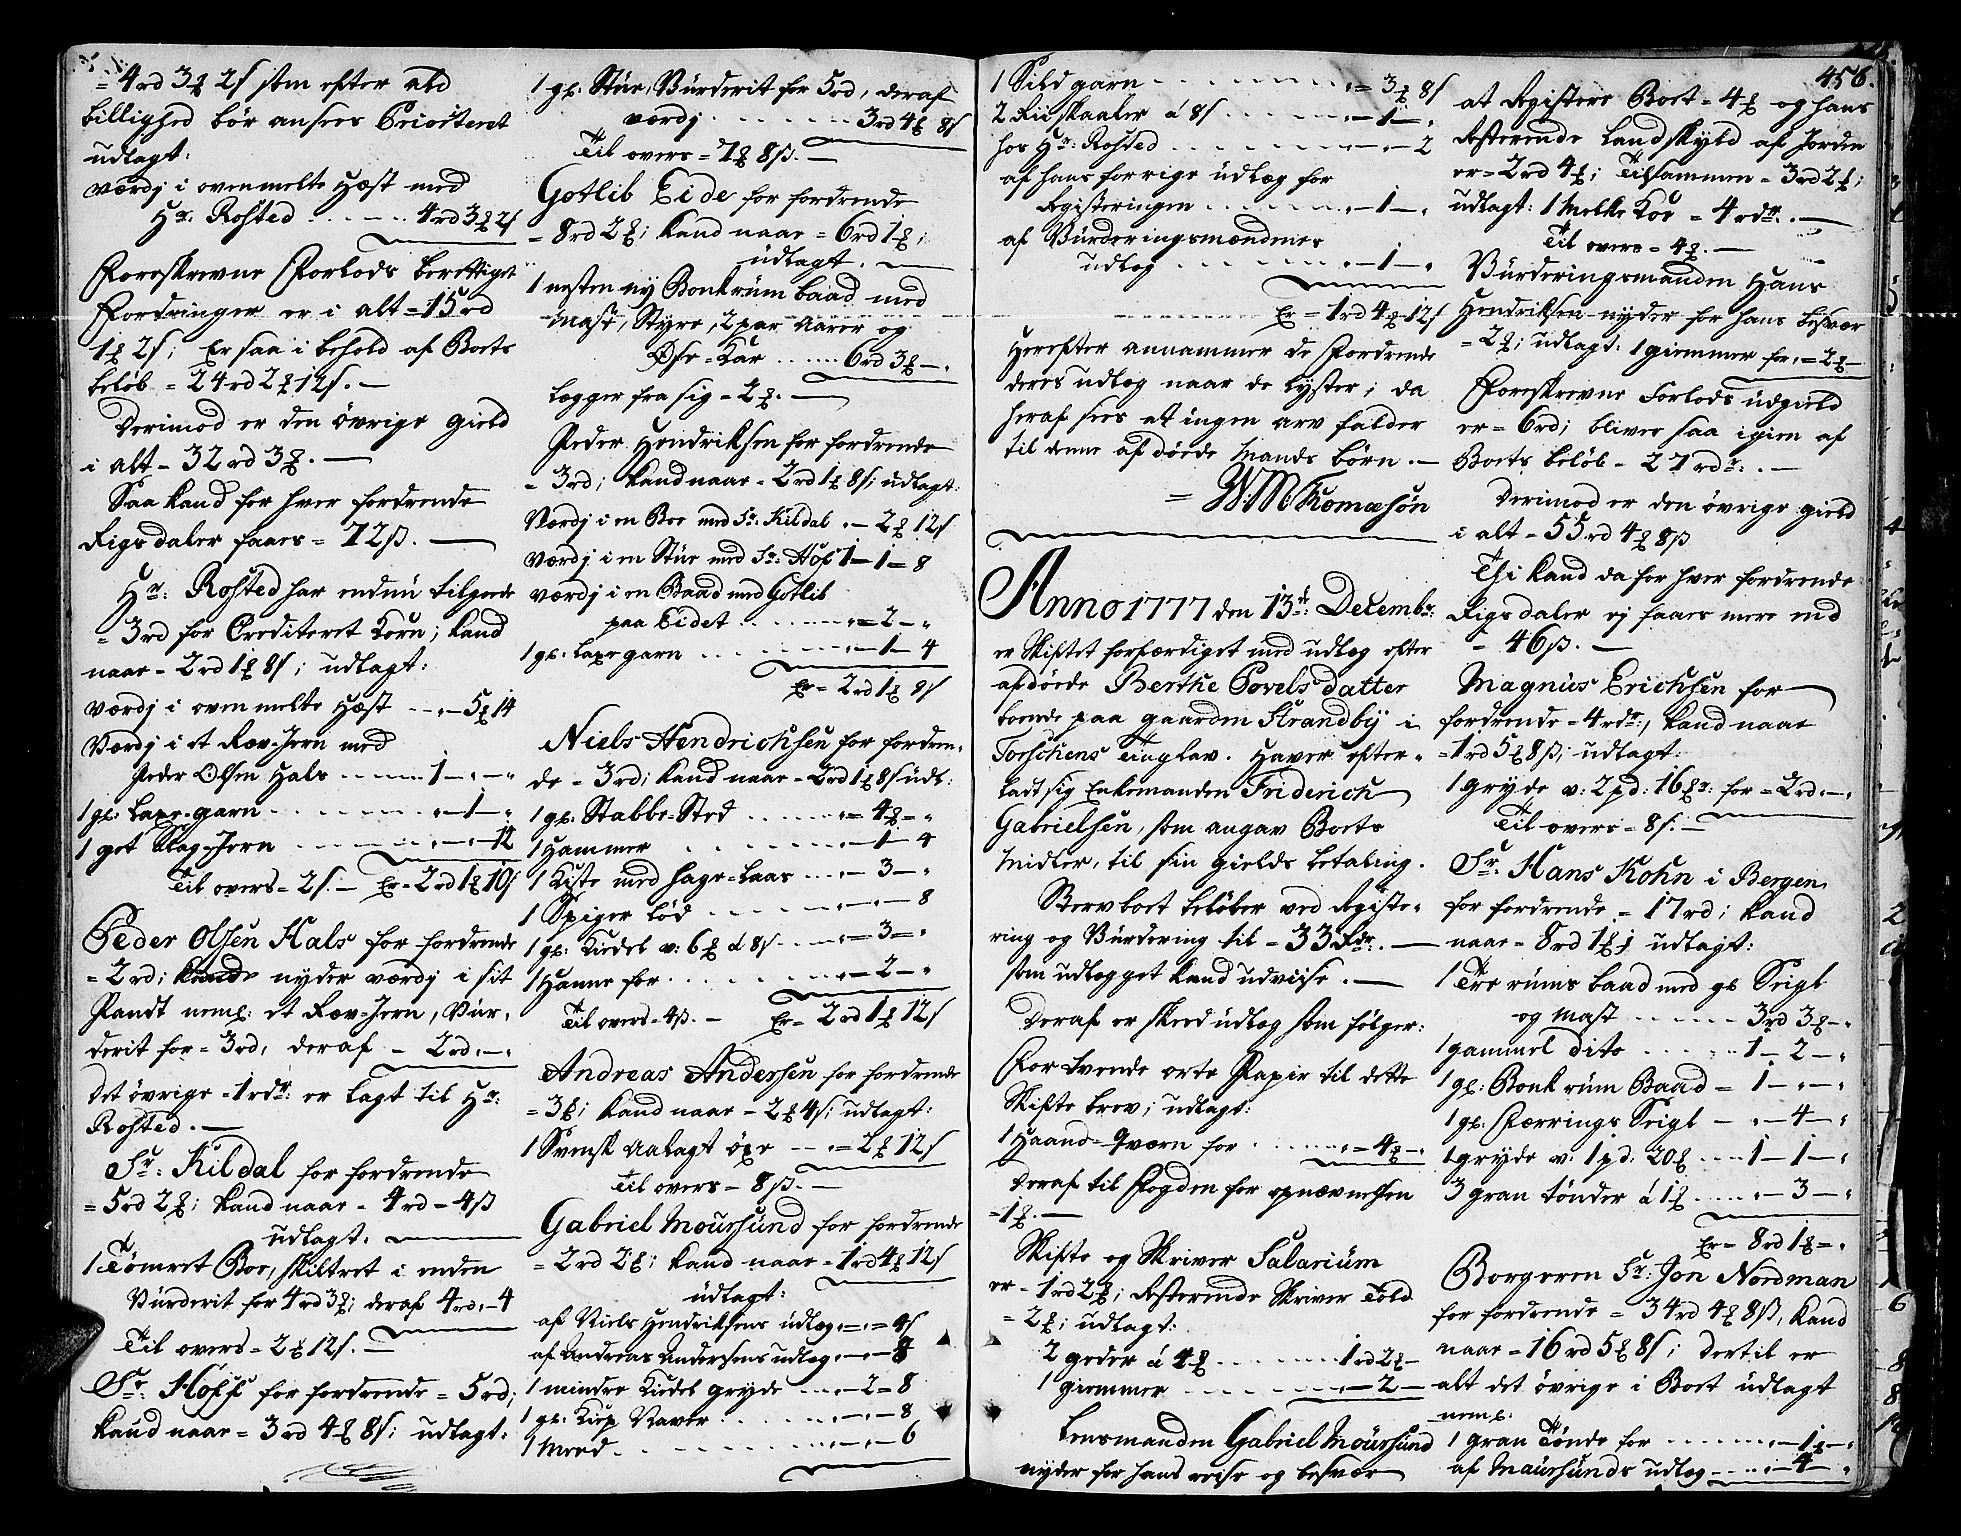 = 4rd 3℔ 2s som efter ald
billighed bör ansees Prioriteret
udlagt:
værdj i ovenmelte Hæst med
Hr: Rosted . . . . . 4rd 3℔ 2s
Foreskrevne Forlods berettiget
Fordringer er i alt = 15rd
1℔ 2s; Er saa i behold af Boets
beløb = 24rd 2℔ 12s. —
Derimod er den övrige gield
i alt = 32rd 3℔. —
Saa kand for hver fordrende
Rigsdaler faaes = 72s. —
Hr: Rosted har endnu tilgode
= 3rd for Crediteret Korn; kand
naae = 2rd 1℔ 8s; udlagt:
værdj i ovenmelte Hæst — „ — 5℔ 14
Værdj i et Ræv-Jern med
Peder Olsen Hals . . . . . 1 — „ — „
1 gl: Laxe-garn . . . . . „ — 1 — „
1 get Klag-Jern . . . . . „ — „ — 12
Til overs = 2s. — Er = 2rd 1℔ 10s
Peder Olsen Hals for fordrende
= 2rd; nyder værdj i sit
Pandt neml: et Ræv-Jern, Vur-
derit for = 3rd, deraf — 2rd. — „
det övrige = 1rdr: er lagt til Hr:
Rosted. —
Sr: Kildal for fordrende
= 5rd 2℔; kand naae = 4rd — 4s
udlagt. —
1 Tömret Boe, skiltret i enden
Vurderit for 4rd 3℔; deraf 4rd. — 4
Til overs = 2℔ 12s. —
Sr: Hoff for fordrende = 5rd;
kand naae = 3rd 4℔ 8s; udlagt:
1 gl: Stue, Vurderit for 5rd, deraf
værdj . . . . . 3rd 4℔ 8s
Til overs = 7℔ 8s. —
Gotlib Eide for fordrende
= 8rd 2℔; kand naae = 6rd 1℔;
udlagt. —
1 nesten ny Bonkrüm baad med
Mast, Styre, 2 par aarer og
Öse-Kar . . . . . 6rd 3℔ — „
legger fra sig = 2℔. —
Peder Hendriksen for fordrende
= 3rd; kand naae = 2rd 1℔ 8s; udlagt.
Værdj i en Boe med Sr: Kildal „ — 2℔ 12s
værdj i en Stue med Sr: Hof 1 — 1 — 8
værdj i en Baad med Gotlib
paa Eidet . . . . . „ = 2 — „
1 gl: Laxegarn . . . . . „ — 1 — 4
Er = 2rd 1℔ 8s
Niels Hendrichsen for fordren-
de = 3rd; kand naae = 2rd 1℔ 8s üdl:
1 gl: Stabbe-Sted . . . . . „ = 4℔ = „
1 Hammer . . . . . „ — 1 — 4
1 Kiste med hage-Laas . . . „ — 3 — „
1 Spiger lød . . . . . „ — „ — 8
1 gl: Kiedel v: 6℔ á 8s . . . „ = 3 = „
1 Hanne for . . . . . „ — 2 — „
Til overs = 4s. — Er = 2rd 1℔ 12s
Andreas Andersen for fordrende
= 3℔; kand naae = 2℔ 4s; udlagt:
1 Svensk Aalagt öxe . . . = 2℔ 12s
Til overs = 8s. —
Gabriel Moursund for fordrende
= 2rd 2℔; kand naae = 1rd 4℔ 12s
udlagt:
af Niels Hendriksens udlæg „ = „ = 4s
af Andreas Andersens udlæg „ — „ — 8
1 mindre Kiedel gryde . . . „ — 2 = 8
1 gl: Kiep Naver . . . . . „ — „ — 8
1 Meed . . . . . „ — „ — 6
456.
1 Sild garn . . . . . „ = 3℔ 8s
2 Riiskaaler á 8s . . . . . „ — 1 — „
hos Hr: Rosted . . . . . „ — „ — 2
af hans forrige udlæg for
Registeringen . . . . . „ — 1 — „
af Vurderingsmændenes
udlæg . . . . . „ — 1 — „
Er = 1rd 4℔ 12s
Herefter annammer de Fordrende
deres udlæg naar de lyster; da
heraf sees at ingen arv falder
til denne afdöede Mands börn. —
= W. M. Thomæsön
Anno 1777 den 13de: Decembr:
er Skiftet forfærdiget med udlæg efter
afdöede Berthe Povelsdatter
boende paa gaarden Strandbÿ i
Torskens Tinglav. Haver efter-
ladt sig Enkemanden Friderich
Gabrielsen, som angav Boets
Midler, til sin gields betaling.
Stervboet beløber ved Registe-
ring og Vurdering til = 33rdr. —
som udlegget kand udviise. —
Deraf er skeed udlæg som følger:
For tvende arte Papir til dette
Skifte brev; udlagt:
1 Haand-Qværn for . . . . . „ = 4℔ — „
Deraf til Fogden for opnævnelsen
= 1℔. —
Skifte og Skriver Salarium
er = 1rd 2℔; Resterende Skriver Told
= 2℔; udlagt:
2 geder á 4℔ . . . . . 1rd 2℔ —
1 giemmer . . . . . „ — 2 —
Lensmanden Gabriel Moursund
nyder for hans reise og besvær
at Registere Boet = 4℔ og hans
Resterende Landskyld af Jorden
er = 2rd 4℔; Tilsammen = 3rd 2℔;
udlagt: 1 Melke Koe = 4rdr. —
Til overs = 4℔. —
Vurderingsmanden Hans
Hendriksen nyder for hans besvær
= 2℔; udlagt: 1 giemmer for „ = 2℔ —
Foreskrevne Forlods udgield
er = 6rd; bliver saa igien af
Boets beløb = 27rdr: . —
Derimod er den övrige gield
i alt = 55rd 4℔ 8s
Thi kand da for hver fordrende
Rigsdaler ej faaes mere end
= 46s. —
Magnus Erichsen for
fordrende = 4rdr:, kand naae
= 1rd 5℔ 8s; udlagt:
1 gryde v: 2pd: 16℔r: for = 2rd. — „
Til overs = 8s. —
Sr: Hans Kohn i Bergen
for fordrende = 17rd; kand
naae = 8rd 1℔; udlagt:
1 Tre rüms baad med gl Seigl
og Mast . . . . . 3rd 3℔ — „
1 gammel dito . . . . . 1 — 2 — „
1 gl: Bonk rüm Baad = 1 — „ — „
1 gl: Færrings Seigl — „ — 4 — „
1 gryde v: 1pd: 20℔ . . . . 1 — 1 — „
3 gran tönder á 1℔ . . . . „ — 3 — „
Er = 8rd 1℔ = „
Borgeren Sr: Jon Nordman
for fordrende = 34rd 4℔ 8s, kand
naae = 16rd 5℔ 8s; dertil er
alt det övrige i Boet udlagt
neml:
1 gran Tönde for . . . . . „ — 1℔ — „
af Maursunds udlæg . . . „ — 4 — „